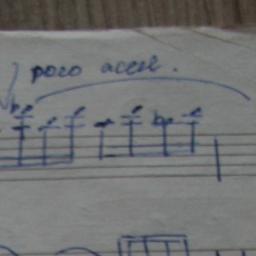 poco accel.